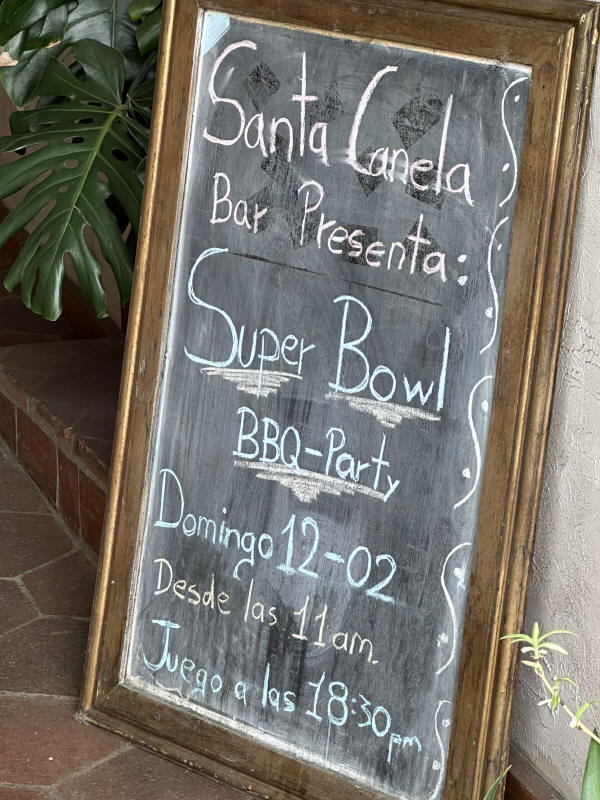 Santa Canela
Bar Presenta:
Super Bowl
BBQ-Party
Domingo 12-02
Desde las 11am.
Juego a las 18:30pm